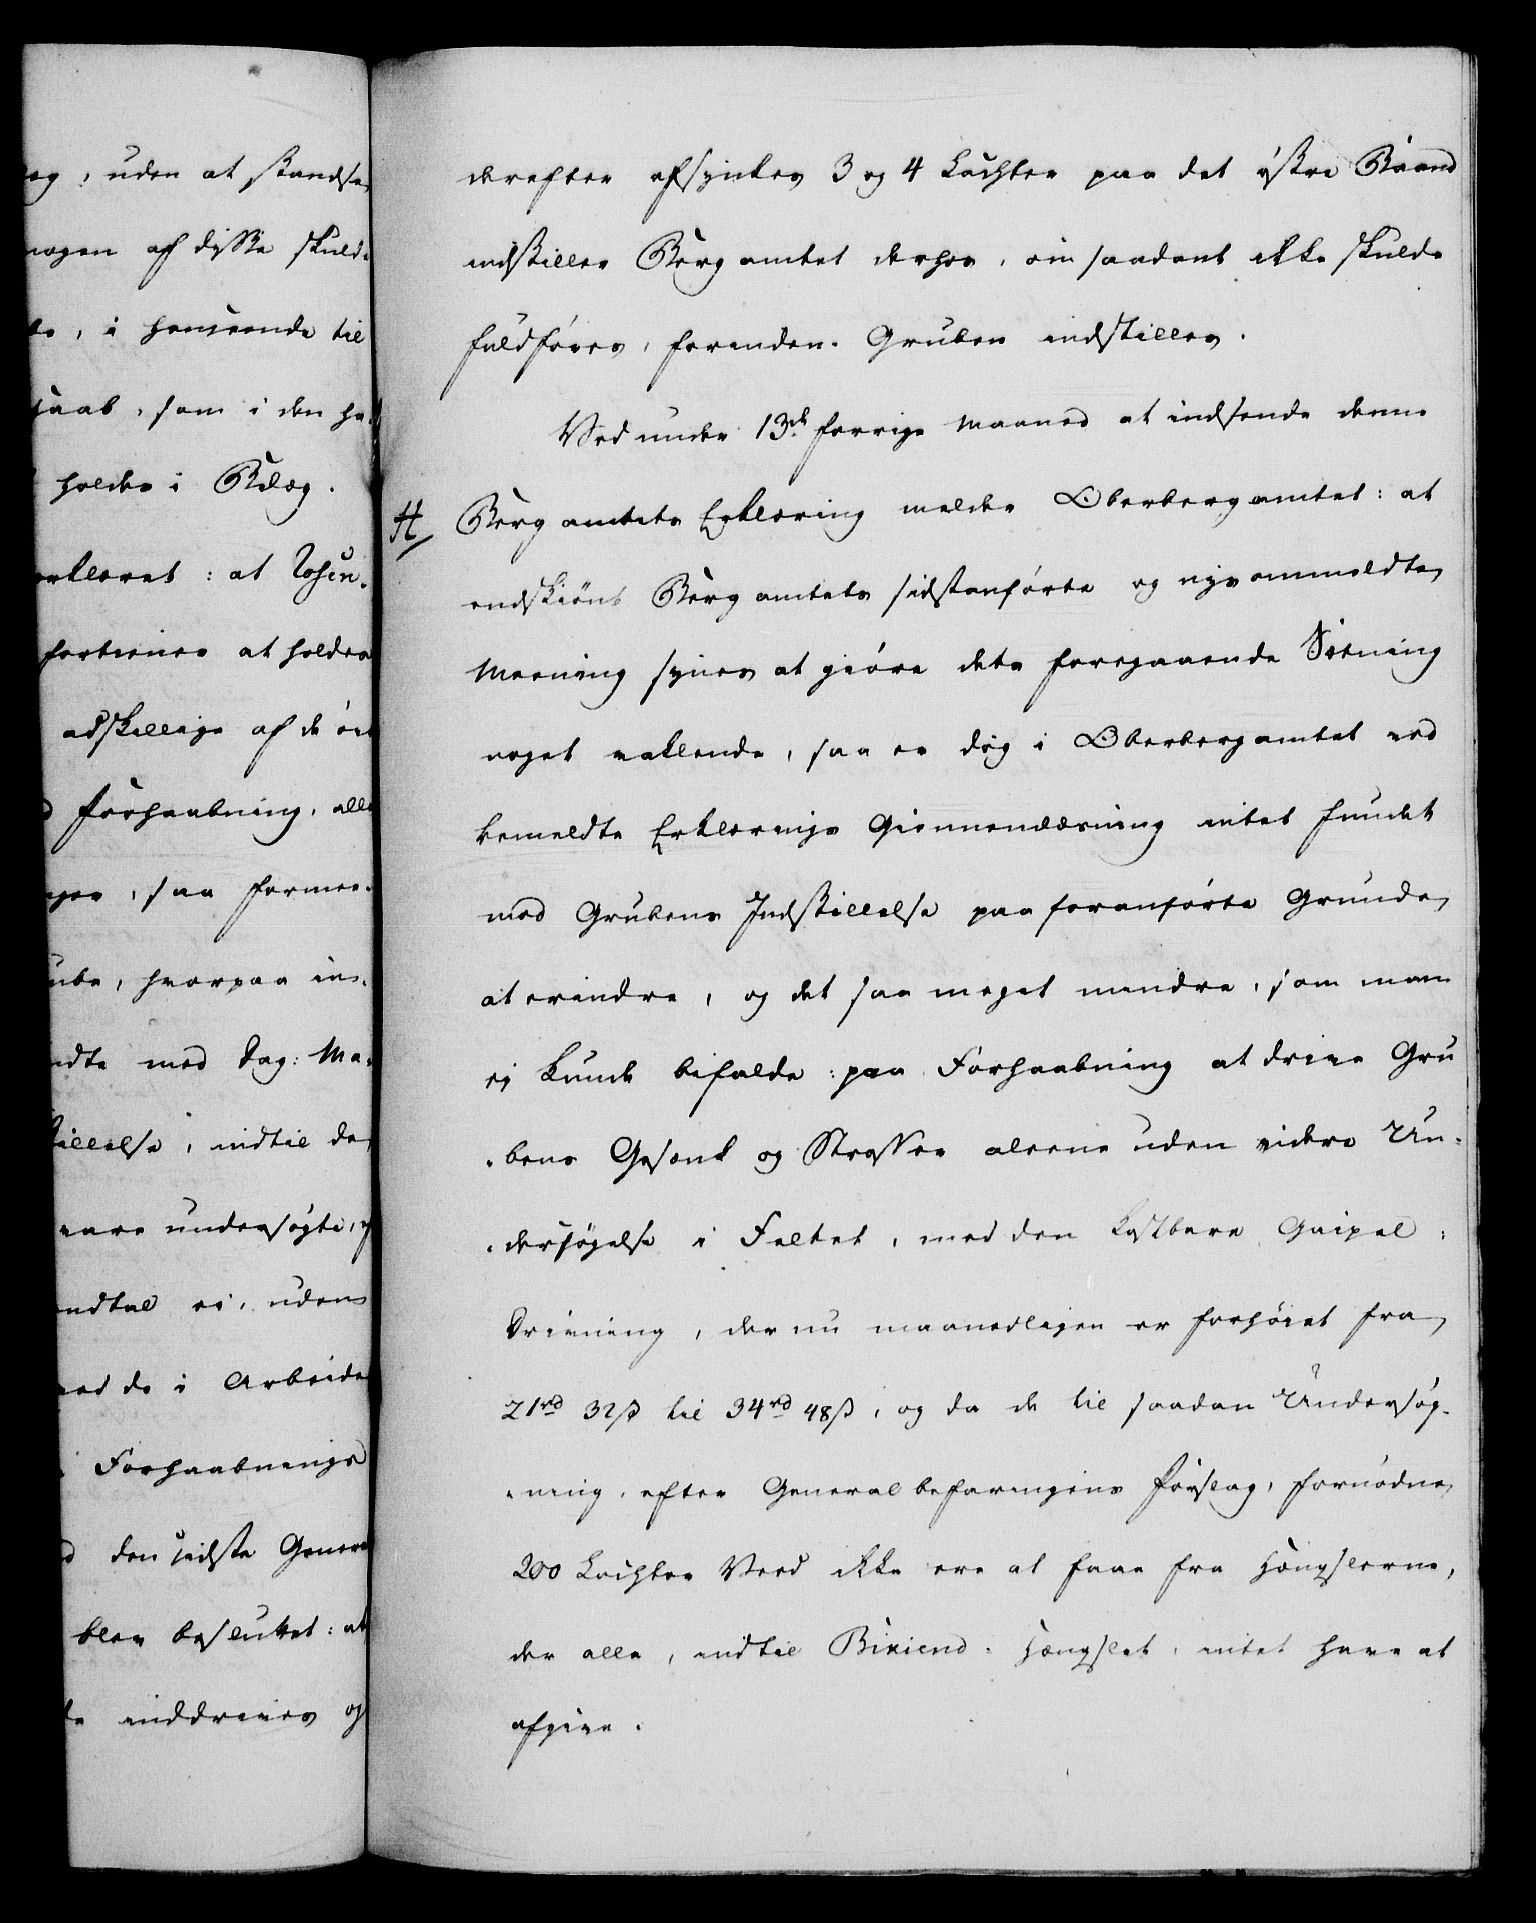 og, uden at standse
nogen af disse skuld-
de, i henseende til
haab, som i den ha-
holdes i Belæg.
erklæret: at Rosen-
fortiener at holdes
adskillige af de ört
d Forhaabning, alle
nger, saa formee-
ube, hvorpaa in-
ndte med Dag: Ma-
tillelse, indtil de
vare undersøgte, og
andtal ei, uden
ved de i Arbeide
i Forhaabnings
d den sidste General
blev besluttet: at
de inddrives og
derefter afsynkes 3 og 4 Lachter paa det östre Baand
indstiller Berg amtet derhos, om saadant ikke skulde
fuldföres, forinden Gruben indstilles.
Ved under 13de forrige Maaned at indsende denne
H
Berg amtets Erklæring melder Oberbergamtet: at
endskiönt Berg amtets sidstanförte og nysanmeldte
Meening synes at giöre dets foregaaende Sætning
noget vaklende, saa er dog i Oberbergamtet ved
bemeldte Erklærings Giennemlæsning intet fundet
mod Grubens Indstillelse paa foranförte Grunde
at erindre, og det saa meget mindre, som man
ej kunde bifalde: paa Forhaabning at drive Gru
-bens Gesenk og Strosser alene uden videre Un-
-dersögelse i Feltet, med den kostbare Gaipel-
Drivning, der nu maanedligen er forhöiet fra
21rd 32ß til 34rd 48ß, og da de til saadan Undersög-
-ning, efter General befaringens Forslag, fornödne
200 Lachter Veed ikke ere at faae fra Hængslerne,
der alle, indtil Biviend-Hængslet, intet have at
afgive.